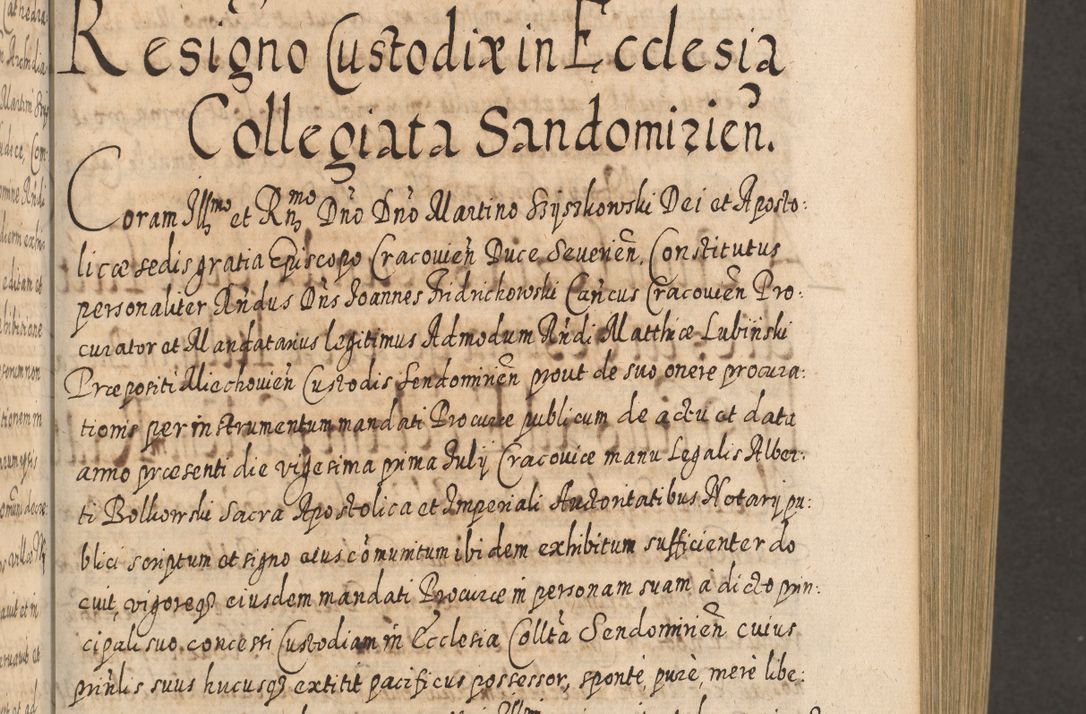 Resigno Custodiæ in Ecclesia
Collegiata Sandomirien̄.
Coram Illmo et Rn̄dmo Dn̄o Dn̄o Martino Szyszkowski Dei et Aposto:
licæ sedis gratia Episcopo Cracovien̄ Duce Severien̄, Constitutus
personaliter Rn̄dus Dn̄s Joannes Fridrichowski Can̄cus Cracovien̄ Pro:
curator et Mandatarius legitimus Admodum Rn̄di Matthiæ Lubiński
Præpositi Miechovien̄ Custodis Sendomirien̄ prout de suo onere procura:
tionis per instrumentum mandati Procuræ publicum de actu et data
anno præsenti die vigesima prima Julij Cracoviæ manu Legalis Alber:
ti Bolkowski Sacra Apostolica et Imperiali Auctoritatibus Notarij pu:
blici scriptum et signo eius cōmunitum ibidem exhibitum sufficienter do
cuit, vigoreqȝ eiusdem mandati Procuræ in personam suam à dicto prin:
cipali suo concessi Custodiam in Ecclesia Collta Sendomirien̄ cuius
prin̄lis suus hucusqȝ extitit pacificus possessor, spontè, purè, merè libe: